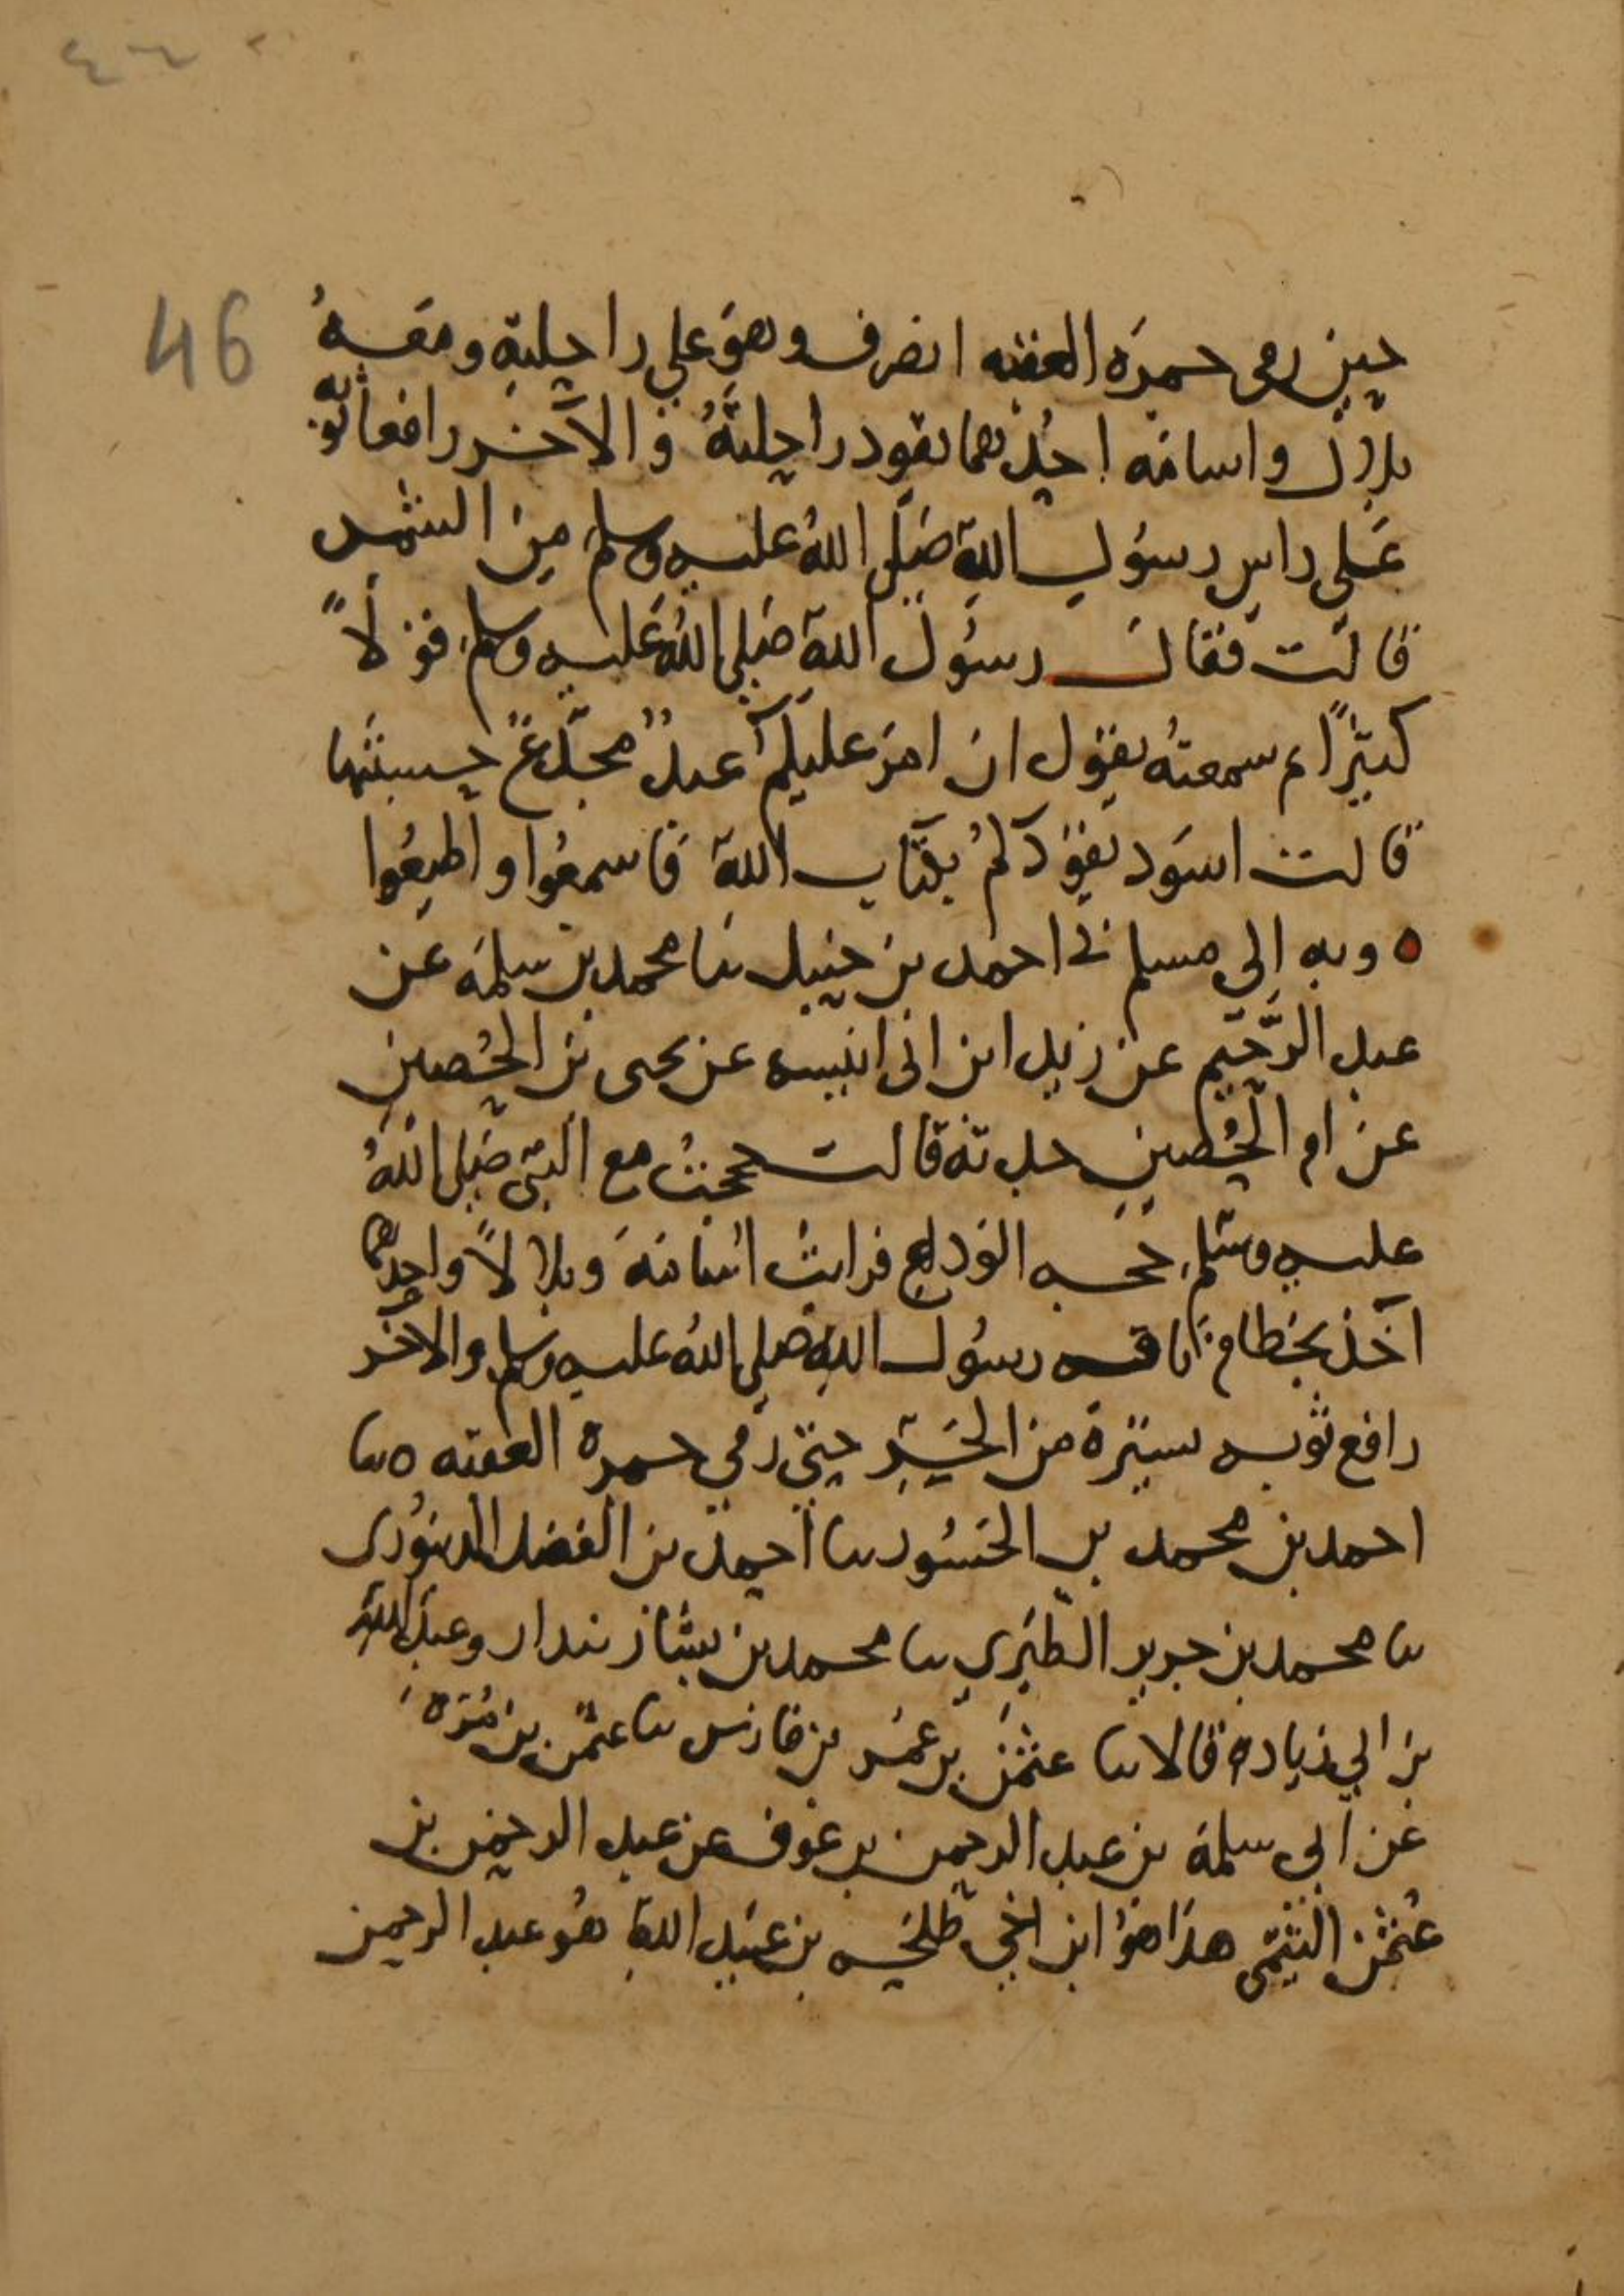 46
حين رمى جمرة العقبه انصرف وهو على راحلته ومعه
بلال واسامه احدهما يقود راحلته والآخر رافعا ثوبه
على راس رسول الله صلى الله عليه وسلم من الشمس
قالت فقال رسول الله صلى الله عليه وسلم قولاً
كثيرًا ثم سمعته يقول ان امر عليكم عبدٌ مجدّعٌ حسبتها
قالت اسود يقودكم بكتاب الله فاسمعوا واطيعوا
ه وبه إلى مسلم نى احمد بن حنبل نا محمد بن سلمه عن
عبد الرحيم عن زيد ابن ابى انيسه عن يحيى بن الحُصين
عن ام الحُصين جدته قالت حججت مع النبى صلى الله
عليه وسلم حجه الوداع فرايت اسامة وبلالاً واحدهما
آخذ بخطام ناقه رسول الله صلى الله عليه وسلم والآخر
رافع ثوبه يستره من الحر حتى رمى جمرة العقبه ه نا
احمد بن محمد بن الجسور نا احمد بن الفضل الدينورى
نا محمد بن جرير الطبري نا محمد بن بشار بندار وعبد الله
بن ابي زياده قالا نا عثمن بن عمر بن فارس نا عثمن بن مرة
عن ابى سلمة بن عبد الرحمن بن عوف عن عبد الرحمن بن
عثمن التيمى هذا هو ابن اخي طلحه بن عبيد الله هو عبد الرحمن